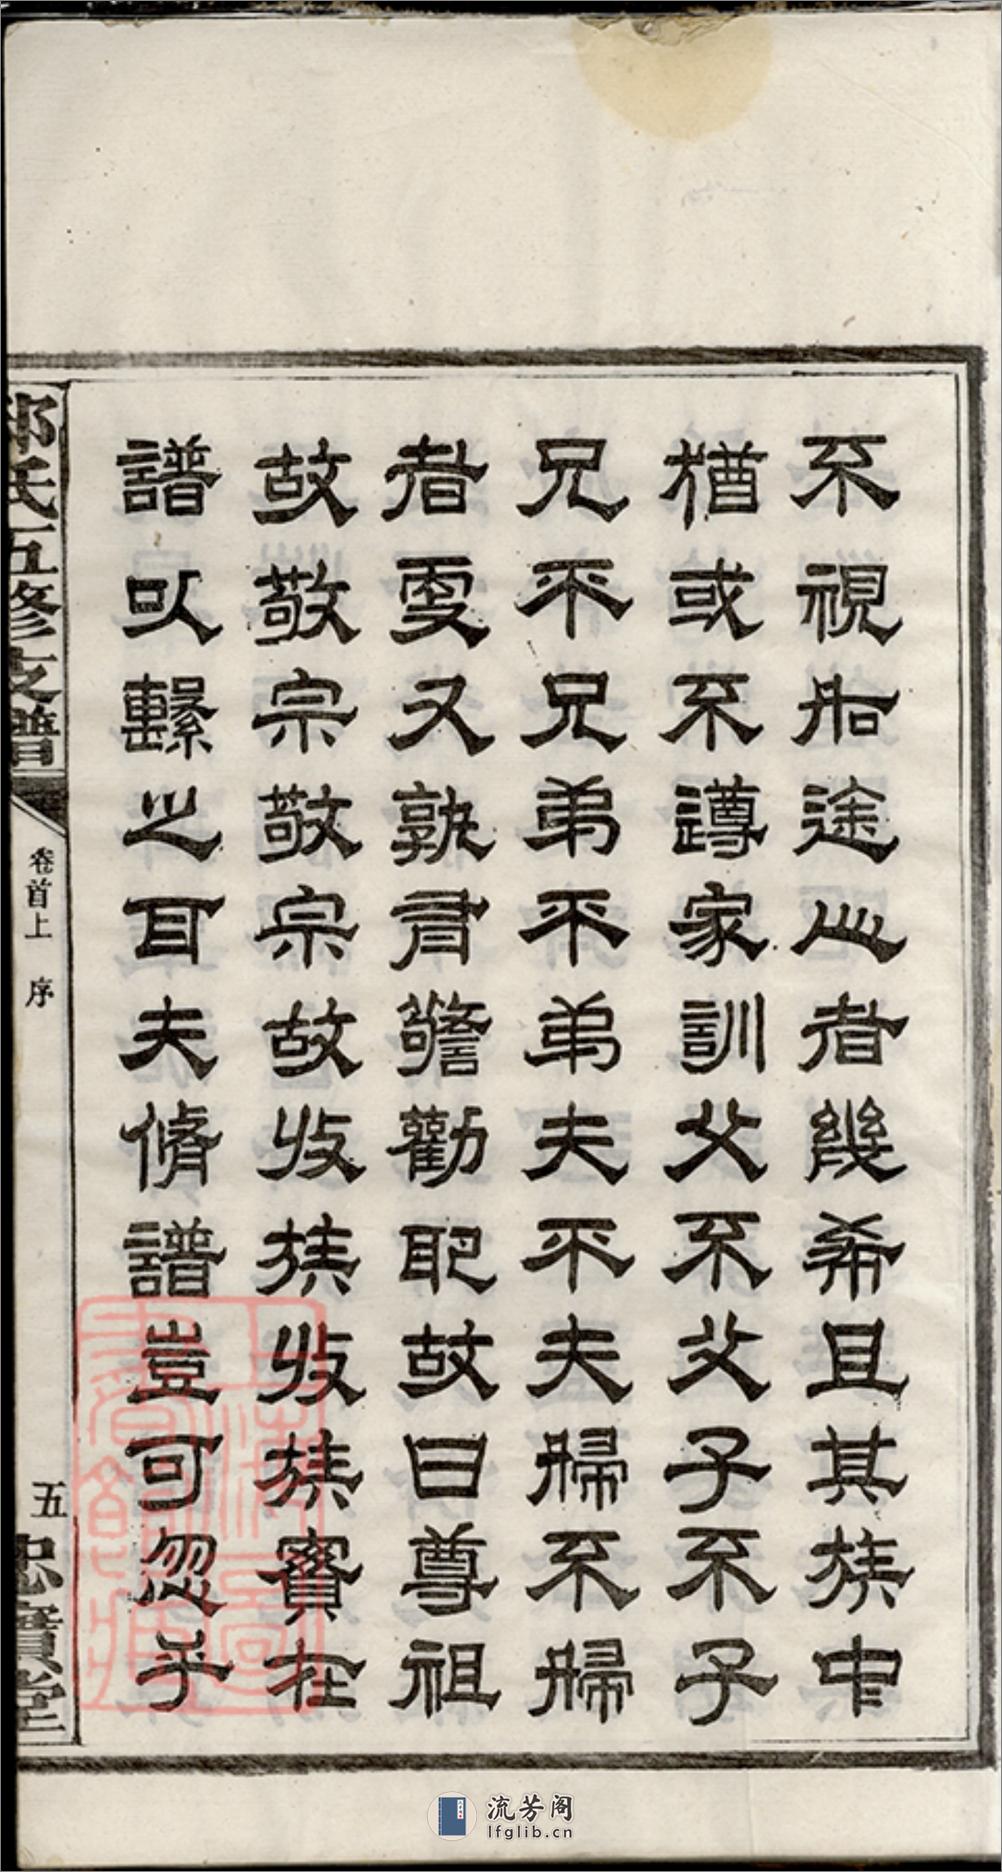 不視如途人者幾希且其族中
猶或不遵家訓父不父子不子
兄不兄弟不弟夫不夫婦不婦
者更又孰肯警勸耶故曰尊祖
故敬宗敬宗故收族收族實在
譜以繫之耳夫脩譜豈可忽乎
氏五修支譜
卷首上 序
五
上海圖書館藏
流芳阁
lfglib.cn